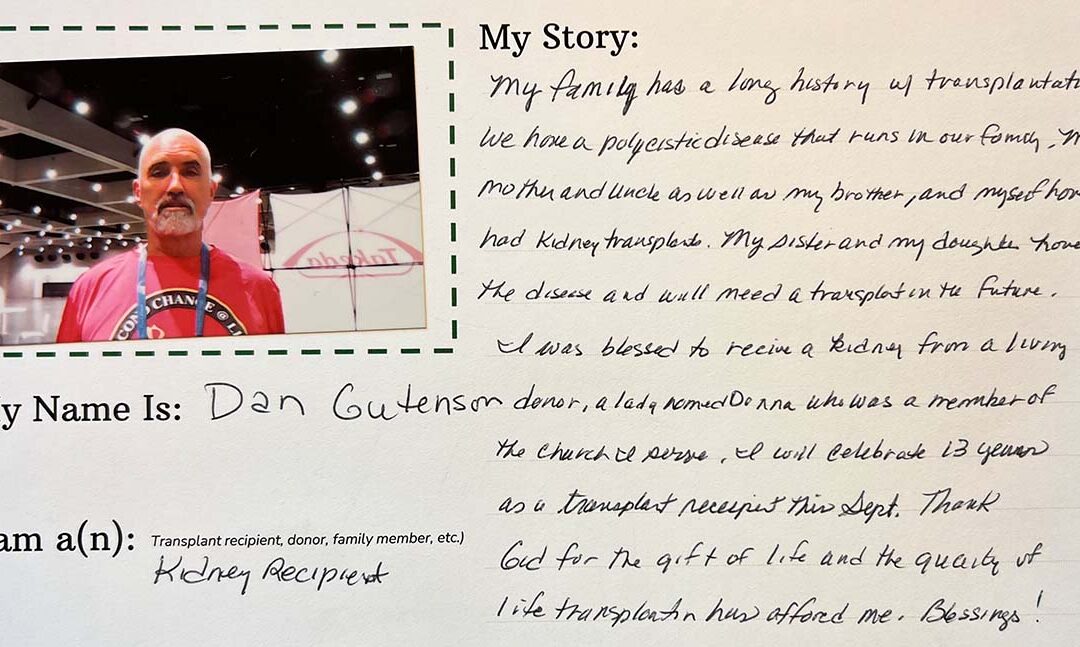 My Story:
My family has a long history w/ transplantati
We have a polycistic disease that runs in our family. M
mother and uncle as well as my brother, and myself hav
had kidney transplants. My sister and my daughter have
the disease and will need a transplat in the future.
I was blessed to recive a kidney from a living
donor, a lady named Donna who was a member of
the church I serve. I will celebrate 13 years
as a transplant recepiet this Sept. Thank
God for the gift of life and the quality of
life transplantin has afforded me. Blessings!
Takeda
COND CHANCE @ LI
y Name Is: Dan Gutenson
am a(n): Transplant recipient, donor, family member, etc.)
Kidney Recipient